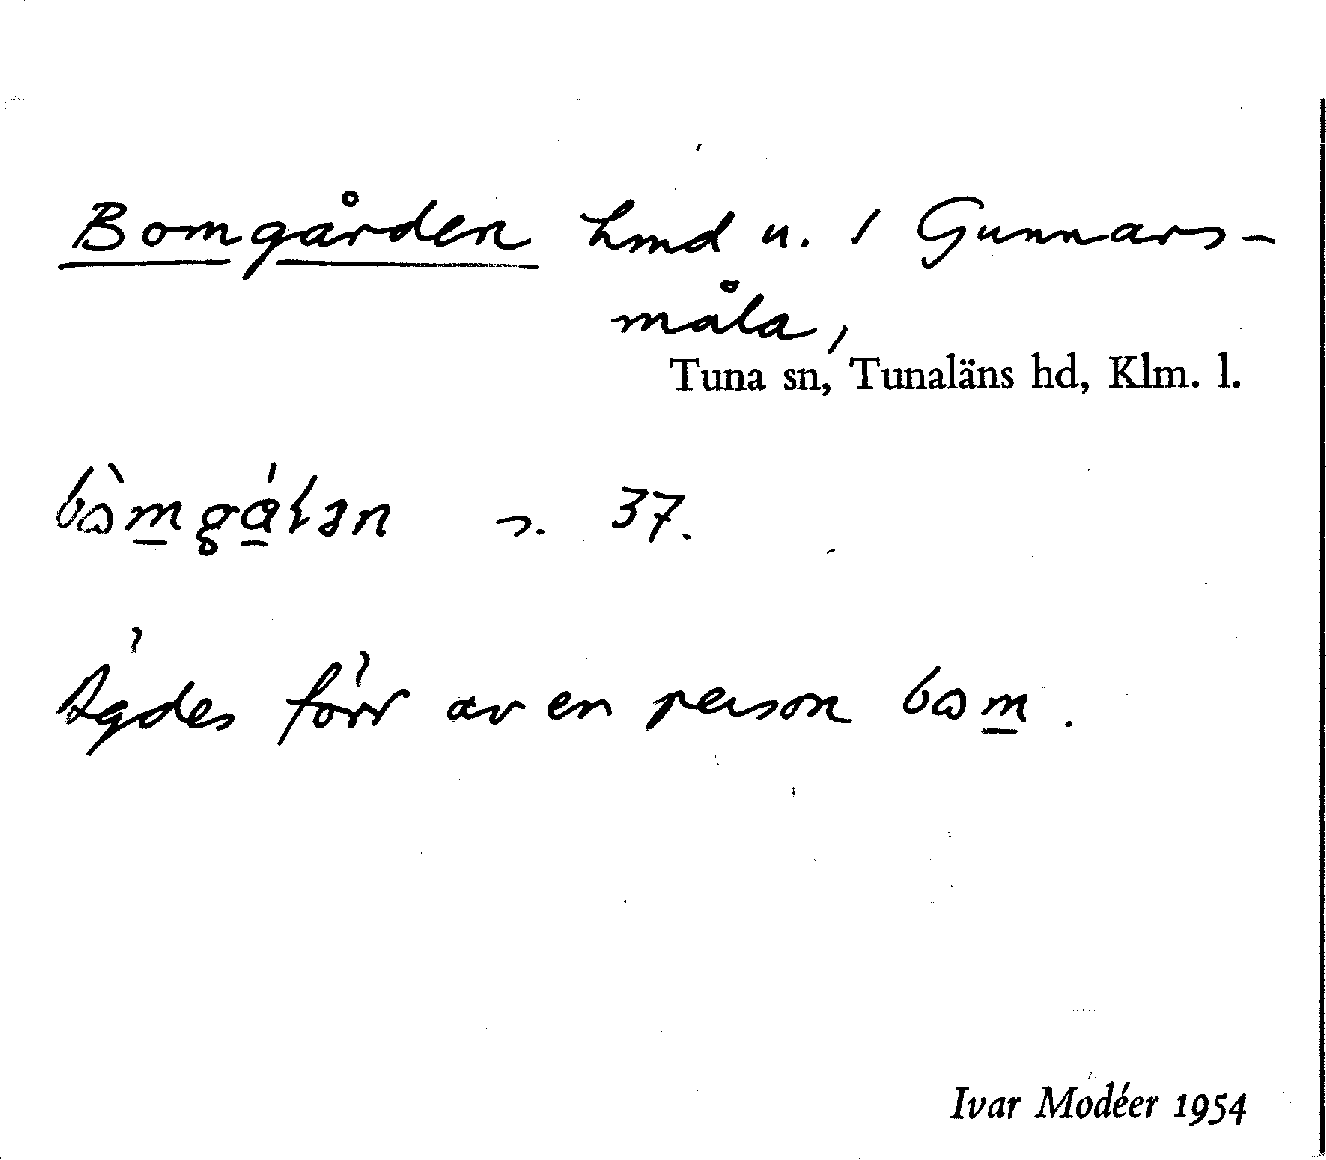 Bomgården hmd u. 1 Gunnars-
måla,
Tuna sn, Tunaläns hd, Klm. l.
37.
Ägdes förr av en person
Ivar Modéer 1954